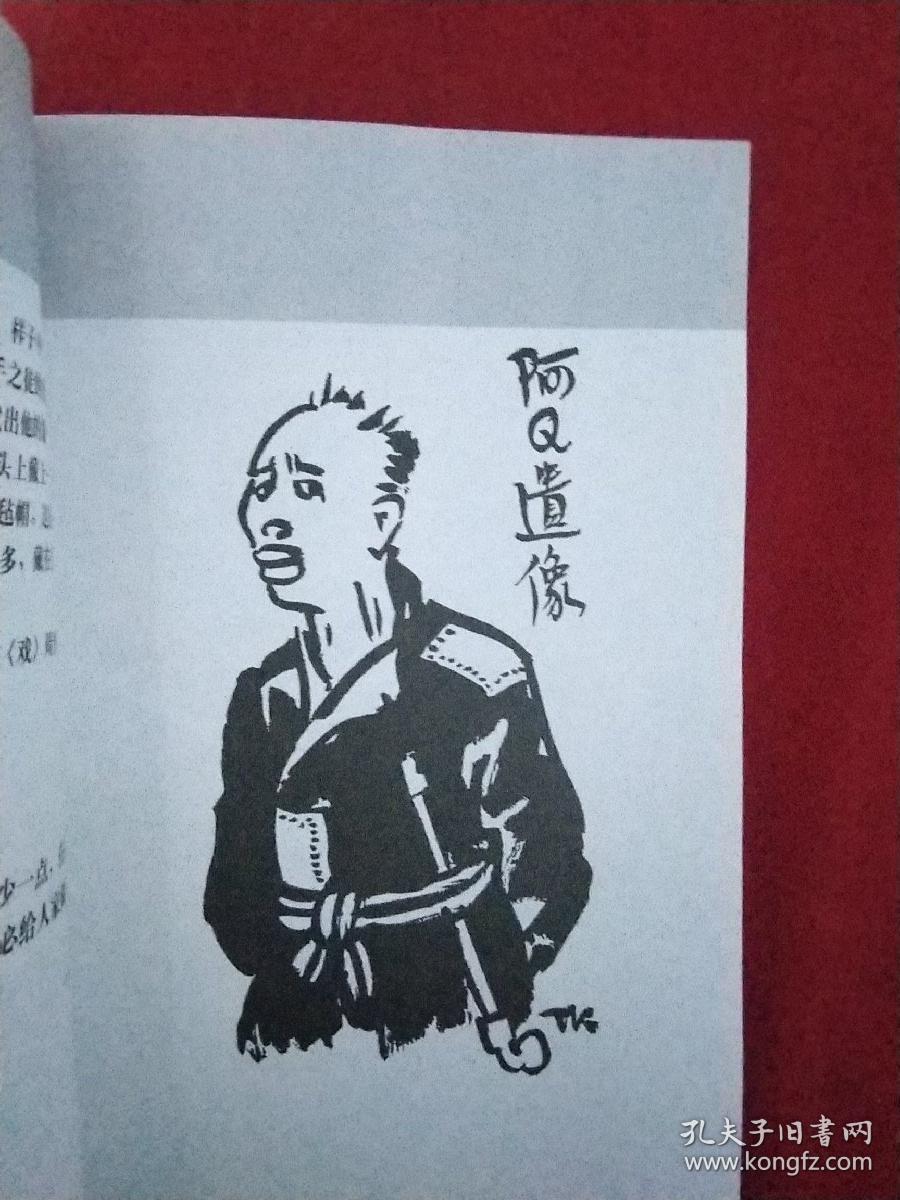 样子
手之徒
出他的
头上戴上
毡帽，
多，藏在
《戏》
少一点，
必给人
阿Q遺像
TK
孔夫子旧書网
www.kongfz.com